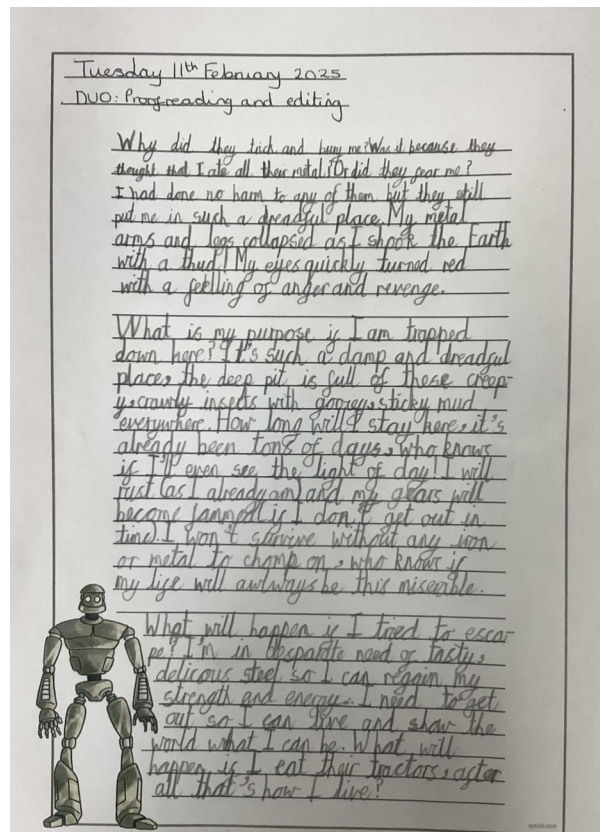 Tuesday 11th February 2025
DUO: Proofreading and editing
Why did they trick and bury me? Was it because they
thought that I ate all their metal? Or did they fear me?
I had done no harm to any of them but they still
put me in such a dreadful place. My metal
arms and legs collapsed as I shook the Earth
with a thud! My eyes quickly turned red
with a feelling of anger and revenge.
What is my purpose if I am trapped
down here? It's such a damp and dreadful
place, the deep pit is full of these creep-
y, crawly insects with gooey, sticky mud
everywhere. How long will I stay here, it's
already been tons of days, who knows
if I'll even see the light of day! I will
rust (as I already am) and my gears will
become jammed if I don't get out in
time. I won't survive without any iron
or metal to chomp on, who knows if
my life will awlways be this miserable.
What will happen if I tried to escar
pe? I'm in desparate need of tasty,
delicous steel so I can regain my
strength and energy. I need to get
out so I can live and show the
world what I can be. What will
happen if I eat their tractors, after
all that's how I live?